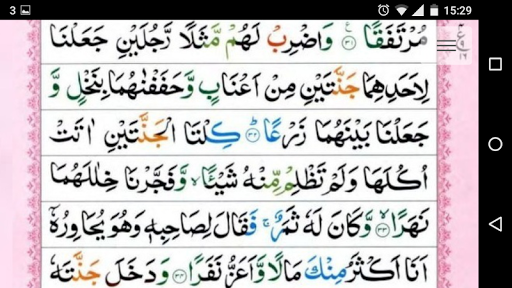 3 15:29
مُرْتَفَقًا ﴿٣١﴾ وَاضْرِبْ لَهُمْ مَّثَلًا رَّجُلَيْنِ جَعَلْنَا
لِاَحَدِهِمَا جَنَّتَيْنِ مِنْ اَعْنَابٍ وَّحَفَفْنٰهُمَا بِنَخْلٍ وَّ
جَعَلْنَا بَيْنَهُمَا زَرْعًا ﴿٣٢﴾ كِلْتَا الْجَنَّتَيْنِ اٰتَتْ
اُكُلَهَا وَلَمْ تَظْلِمْ مِّنْهُ شَيْئًا وَّفَجَّرْنَا خِلٰلَهُمَا
نَهَرًا ﴿٣٣﴾ وَّكَانَ لَهٗ ثَمَرٌ فَقَالَ لِصَاحِبِهٖ وَهُوَ يُحَاوِرُهٗٓ
اَنَا اَكْثَرُ مِنْكَ مَالًا وَّاَعَزُّ نَفَرًا ﴿٣٤﴾ وَدَخَلَ جَنَّتَهٗ